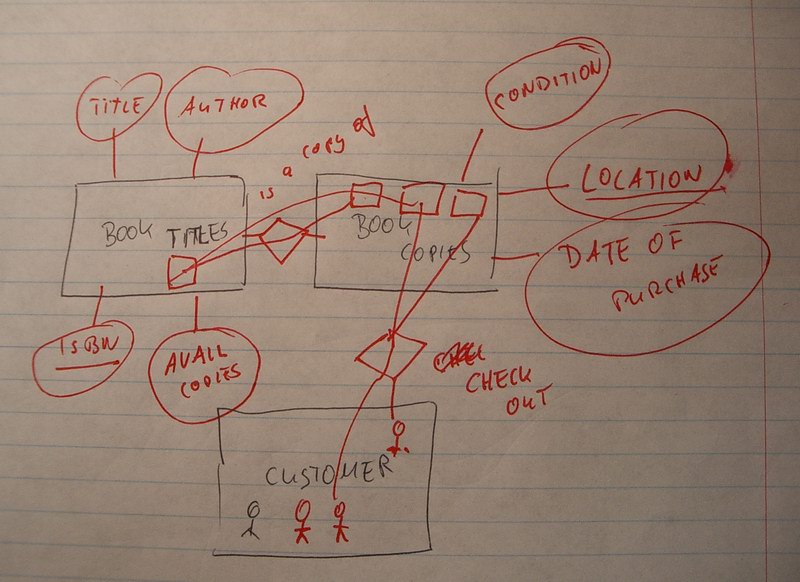 CONDITION
TITLE
AUTHOR
is a copy of
LOCATION
BOOK TITLES
BOOK
COPIES
DATE OF
PURCHASE
ISBN
AVAIL
COPIES
CHECK
OUT
CUSTOMER